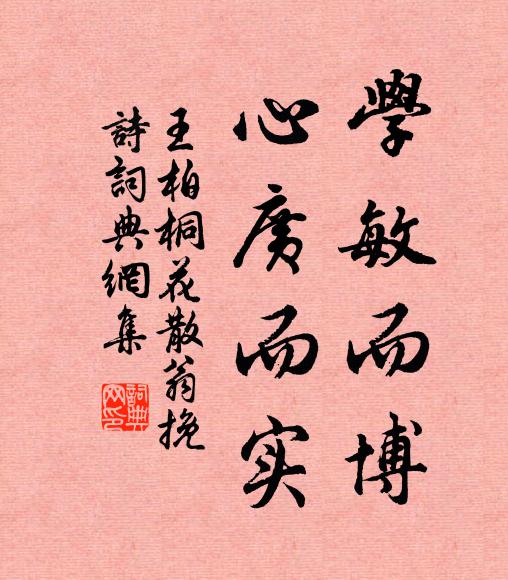 學敏而博
心廣而实
王柏桐花散翁挽
詩詞典網集
詞典
网印